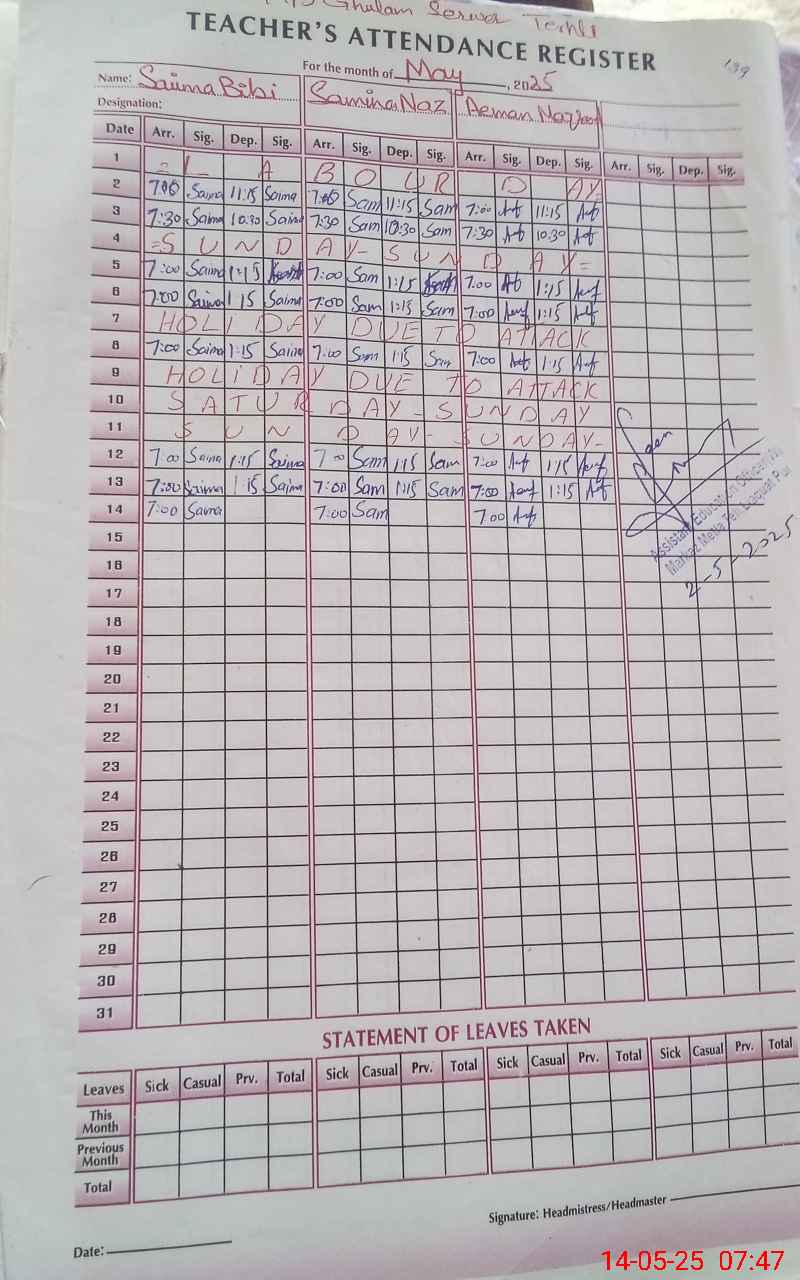 Ghulam Serwar
TEACHER'S ATTENDANCE REGISTER
139
For the month of May, 2025
Name: Saima Bibi Samina Naz Aeman
Designation:
Date Arr. Sig. Dep. Sig. Arr. Sig. Dep. Sig. Arr. Sig. Dep. Sig. Arr. Sig. Dep. Sig.
1 L A B O U R D AY
2 7:00 Saima 11:15 Saima 7:00 Sam 11:15 Sam 7:00 11:15
3 7:30 Saima 10:30 Saima 7:30 Sam 10:30 Sam 7:30 10:30
4 =S U N D AY- S U N D A Y=
5 7:00 Saima 1:15 7:00 Sam 1:15 7:00 1:15
6 7:00 Saima 1:15 Saima 7:00 Sam 1:15 Sam 7:00 1:15
7 HOLIDAY DUE TO ATTACK
8 7:00 Saima 1:15 Saima 7:00 Sam 1:15 Sam 7:00 1:15
9 HOLIDAY DUE TO ATTACK
10 S A T U R DAY - S U N D A Y
11 S U N D AY- SUNDAY-
12 7:00 Saima 1:15 Saima 7:00 Sam 1:15 Sam 7:00 1:15
13 7:00 Saima 1:15 Saima 7:00 Sam 1:15 Sam 7:00 1:15
14 7:00 Saima 7:00 Sam 7:00
Assistant Education Officer
Markaz
2-5-2025
15
16
17
18
19
20
21
22
23
24
25
26
27
28
29
30
31
STATEMENT OF LEAVES TAKEN
Leaves Sick Casual Prv. Total Sick Casual Prv. Total Sick Casual Prv. Total Sick Casual Prv. Total
This Month
Previous Month
Total
Signature: Headmistress/Headmaster
Date:
14-05-25 07:47